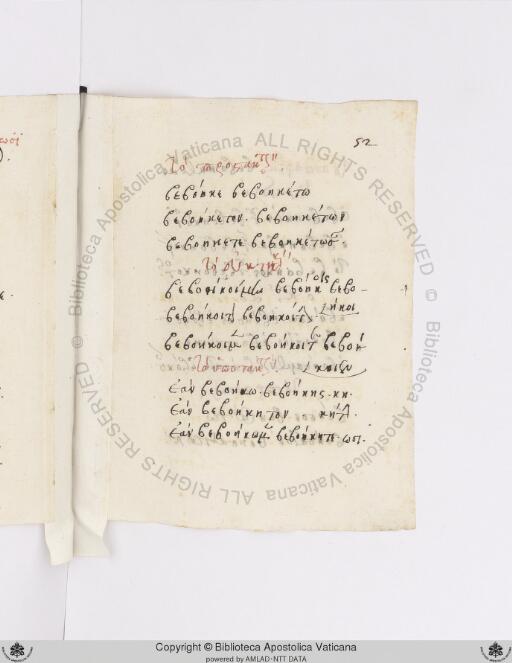 52
Τὸ προστακτ
βεβόηκε βεβοηκέτω
βεβοήκετον. βεβοηκέτων
βεβοήκετε βεβοηκέτωσ
Τὸ εὐκτικ
βεβοήκοιμι βεβοήκοις βεβο-
ήκοι
βεβοήκοιτ βεβοηκοίτ
βεβοήκοιμ βεβοήκοιτ βεβοή
κοιεν
Τὸ ὑποτακτ
Ἐὰν βεβοήκω. βεβοήκης. κη.
Ἐὰν βεβοήκητον κητ.
Ἐὰν βεβοήκωμ βεβοήκητε. ωσι.
Copyright © Biblioteca Apostolica Vaticana
powered by AMLAD-NTT DATA
© Biblioteca Apostolica Vaticana ALL RIGHTS RESERVED
© Biblioteca Apostolica Vaticana ALL RIGHTS RESERVED